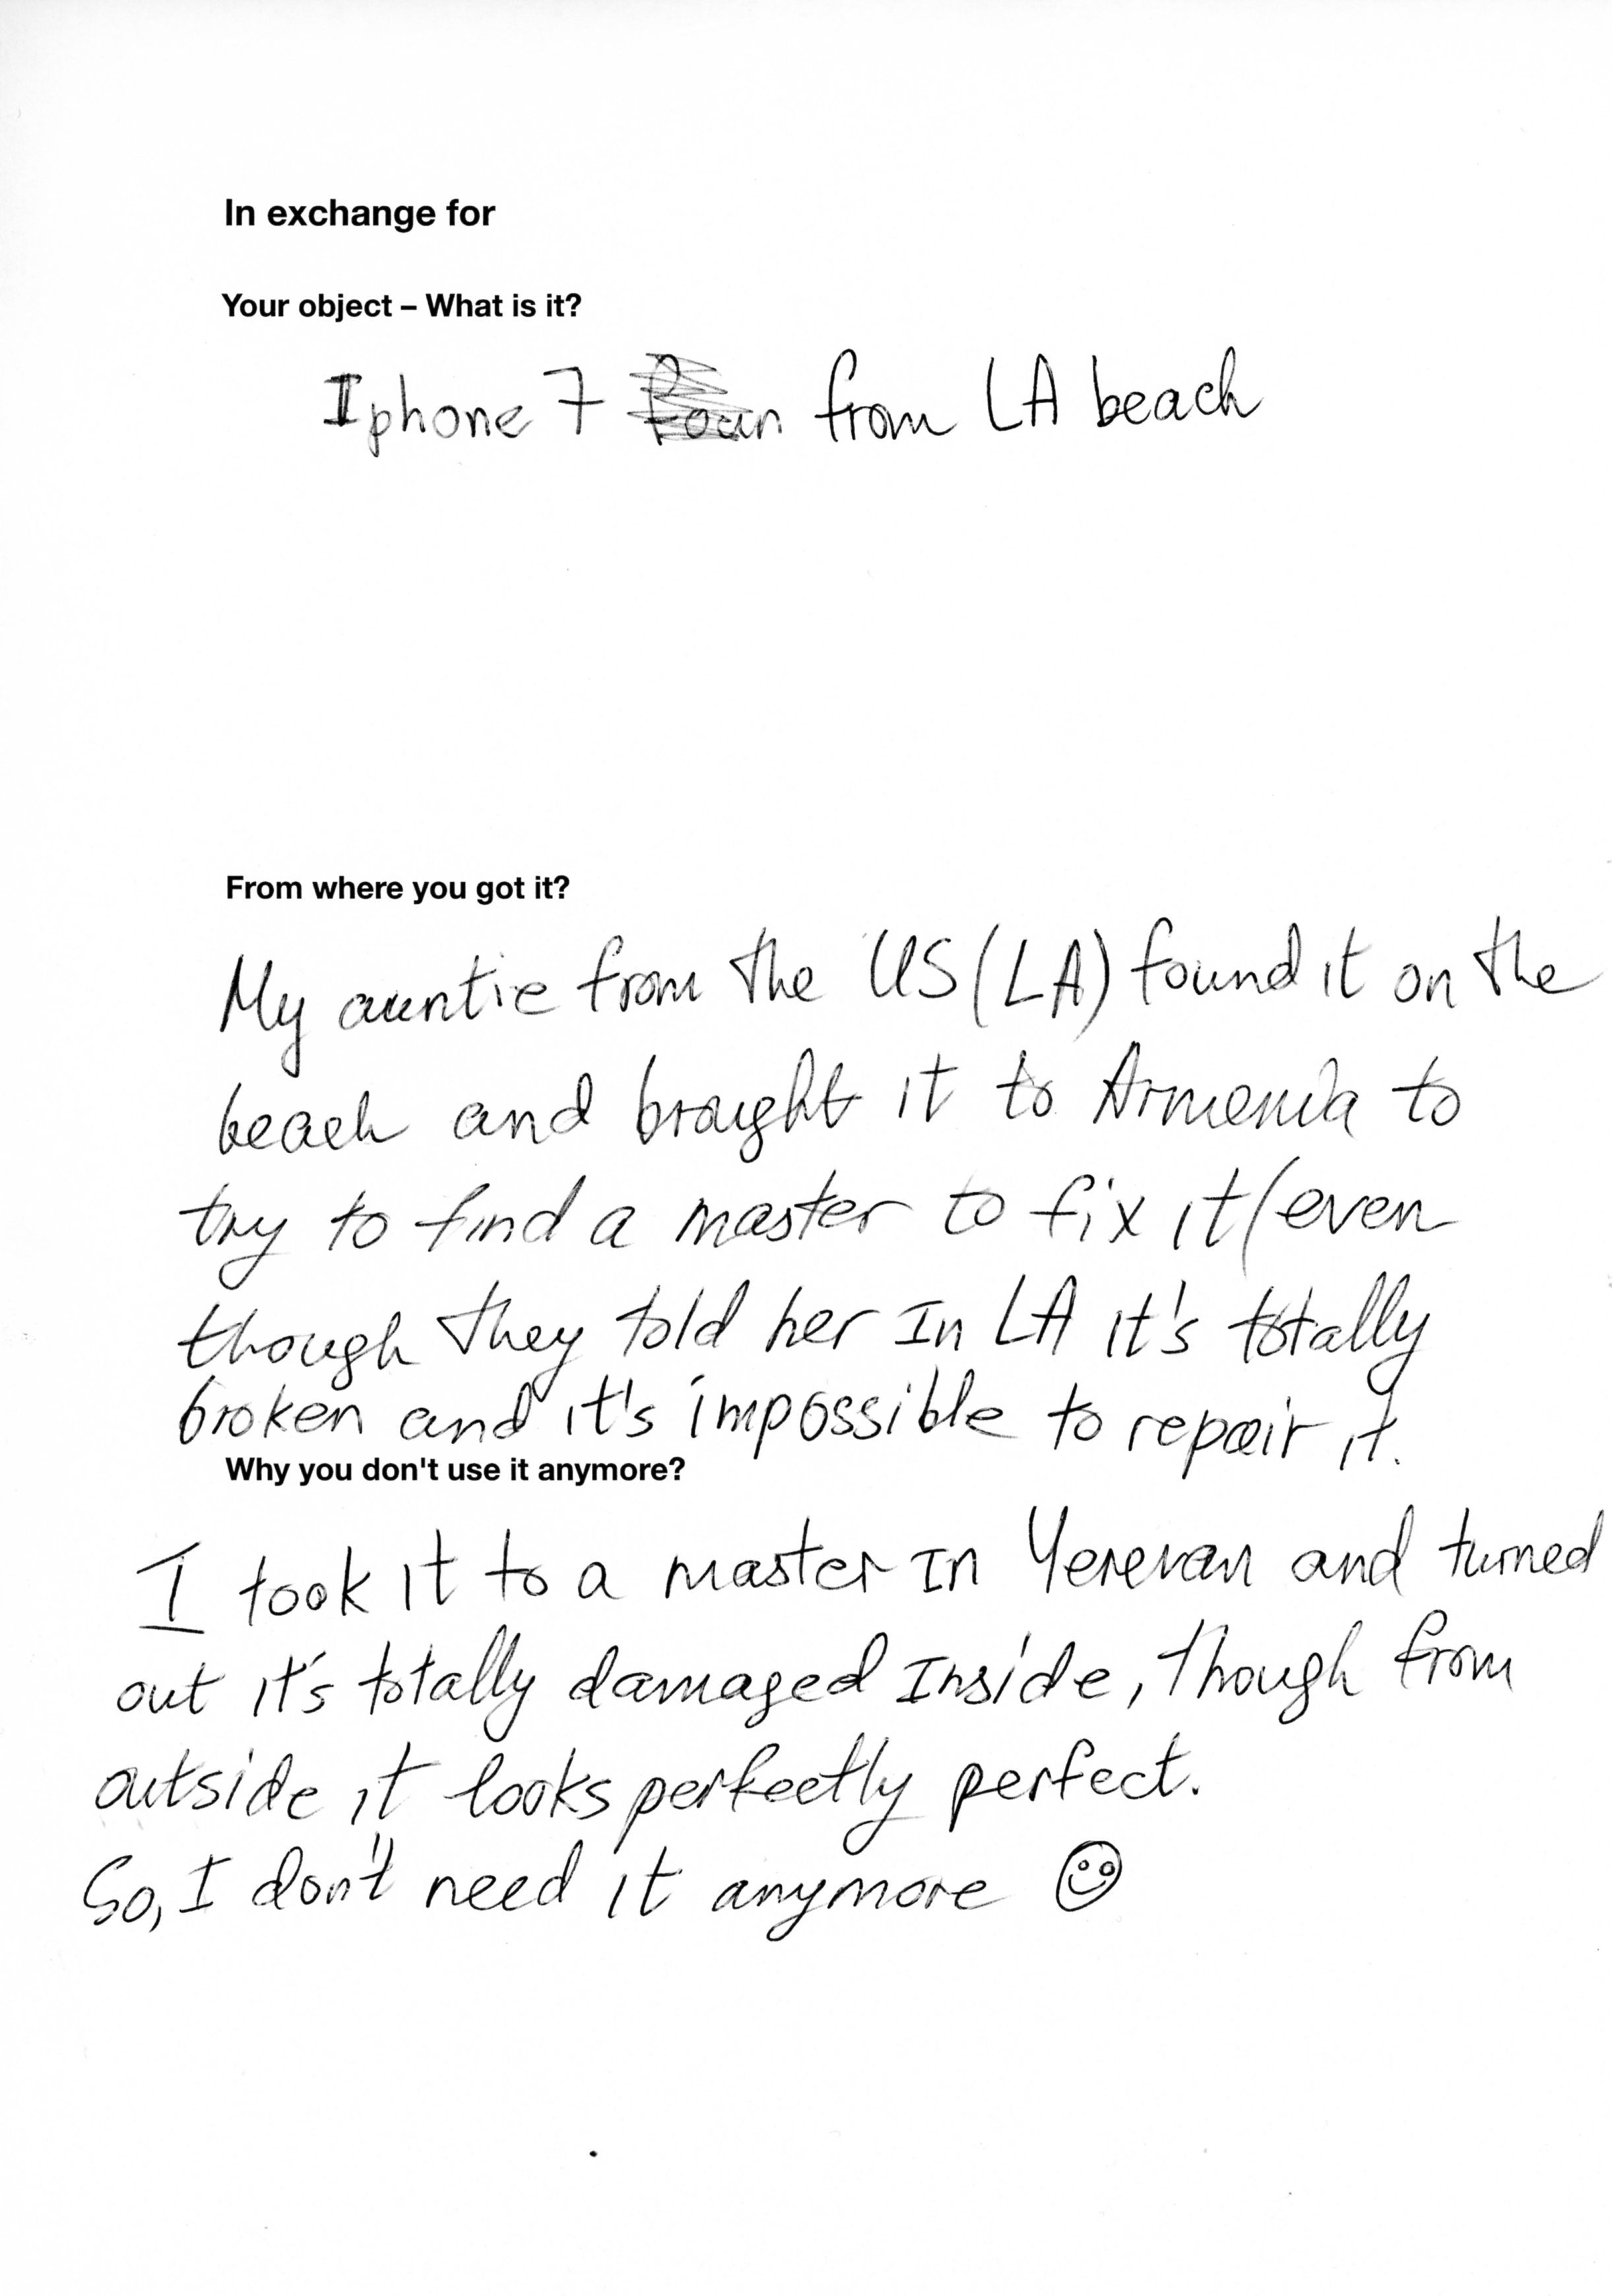 In exchange for
Your object – What is it?
Iphone 7 from LA beach
From where you got it?
My auntie from the US (LA) found it on the
beach and brought it to Armenia to
try to find a master to fix it (even
though they told her in LA it's totally
broken and it's impossible to repair it.
Why you don't use it anymore?
I took it to a master in Yerevan and turned
out it's totally damaged inside, though from
outside it looks perfectly perfect.
So, I don't need it anymore ☺